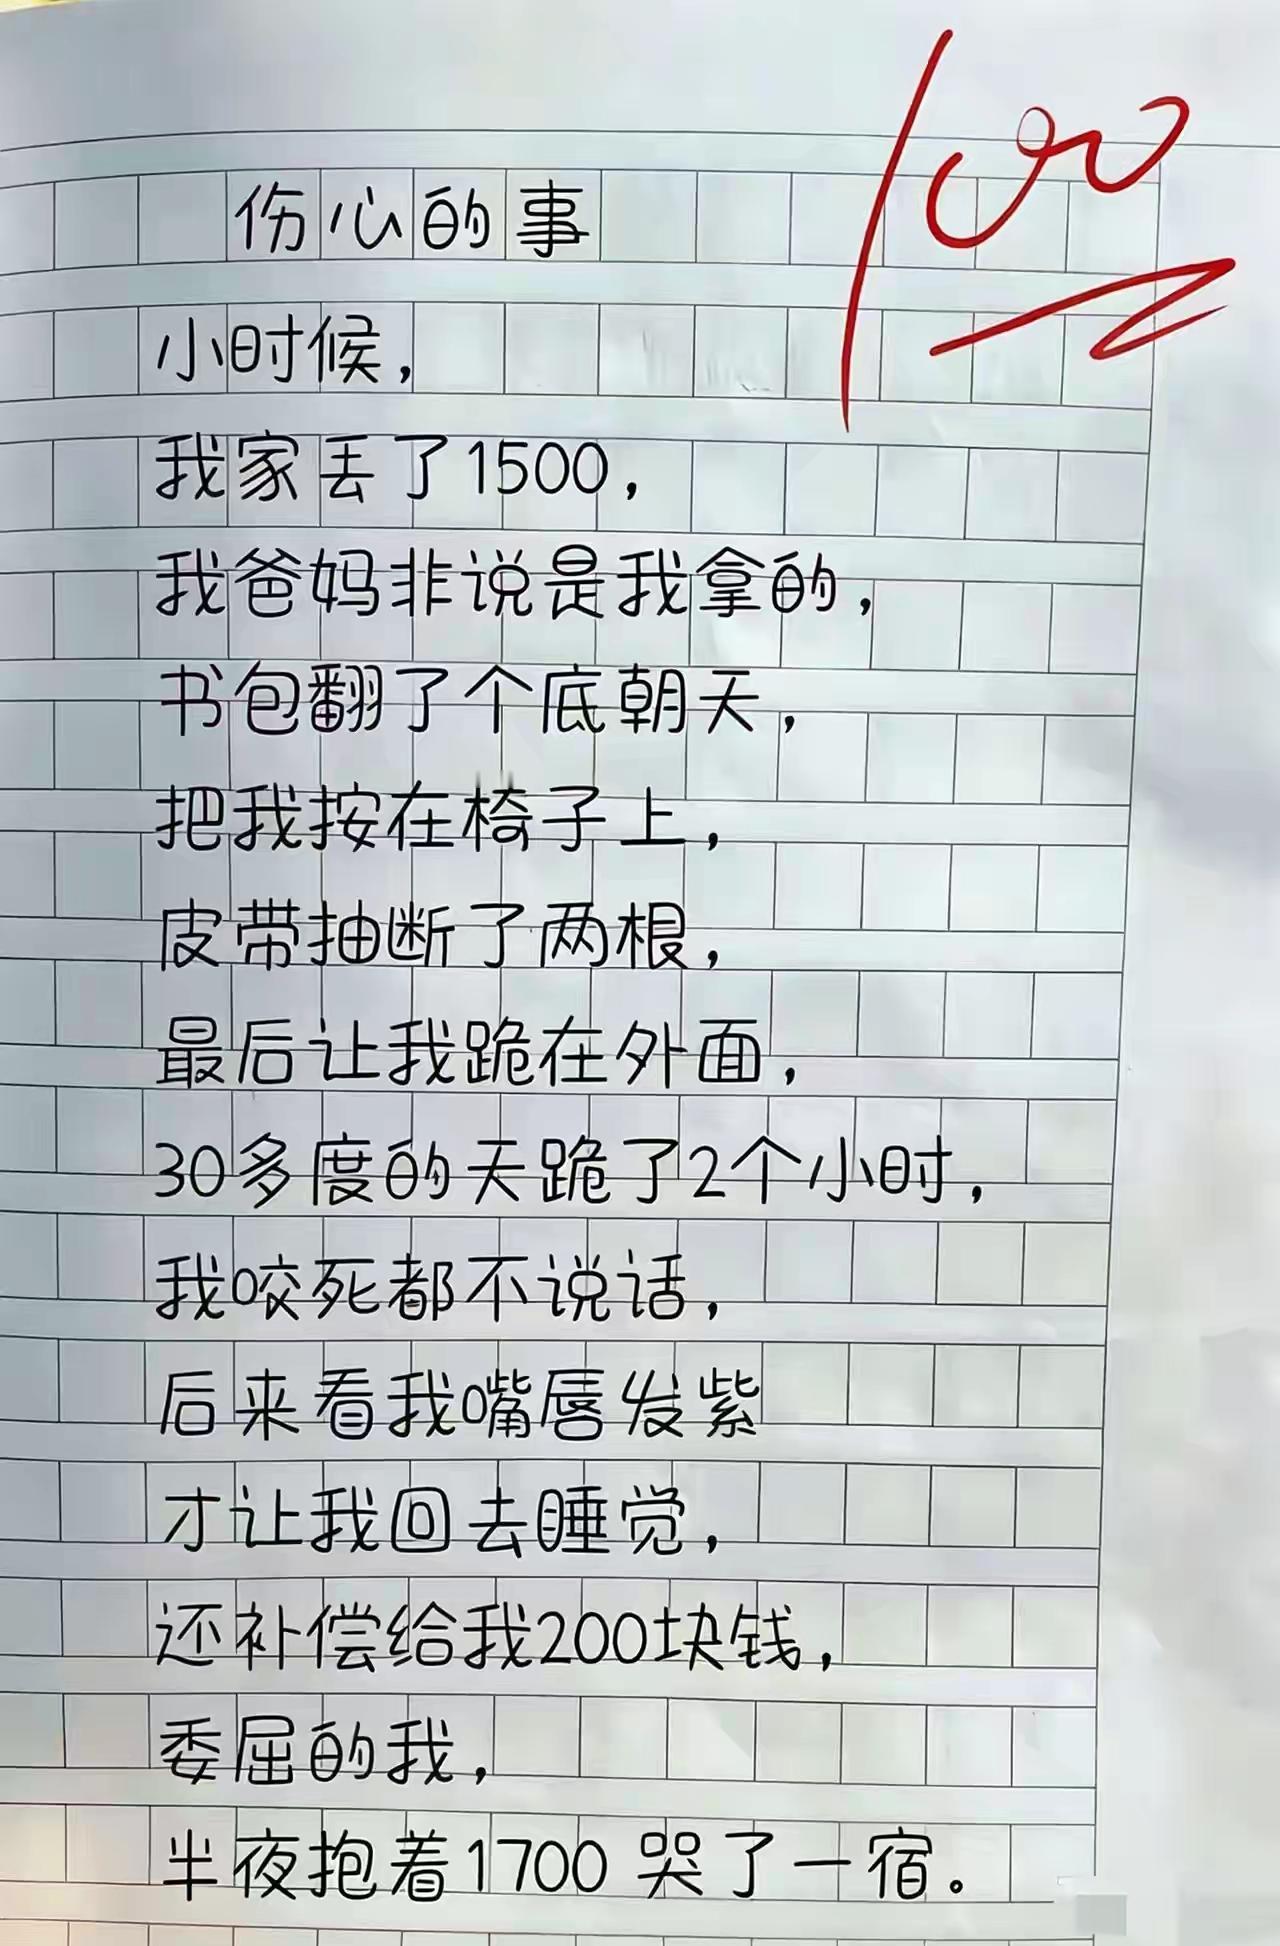 100
伤心的事
小时候，
我家丢了1500，
我爸妈非说是我拿的，
书包翻了个底朝天，
把我按在椅子上，
皮带抽断了两根，
最后让我跪在外面，
30多度的天跪了2个小时，
我咬死都不说话，
后来看我嘴唇发紫
才让我回去睡觉，
还补偿给我200块钱，
委屈的我，
半夜抱着1700哭了一宿。